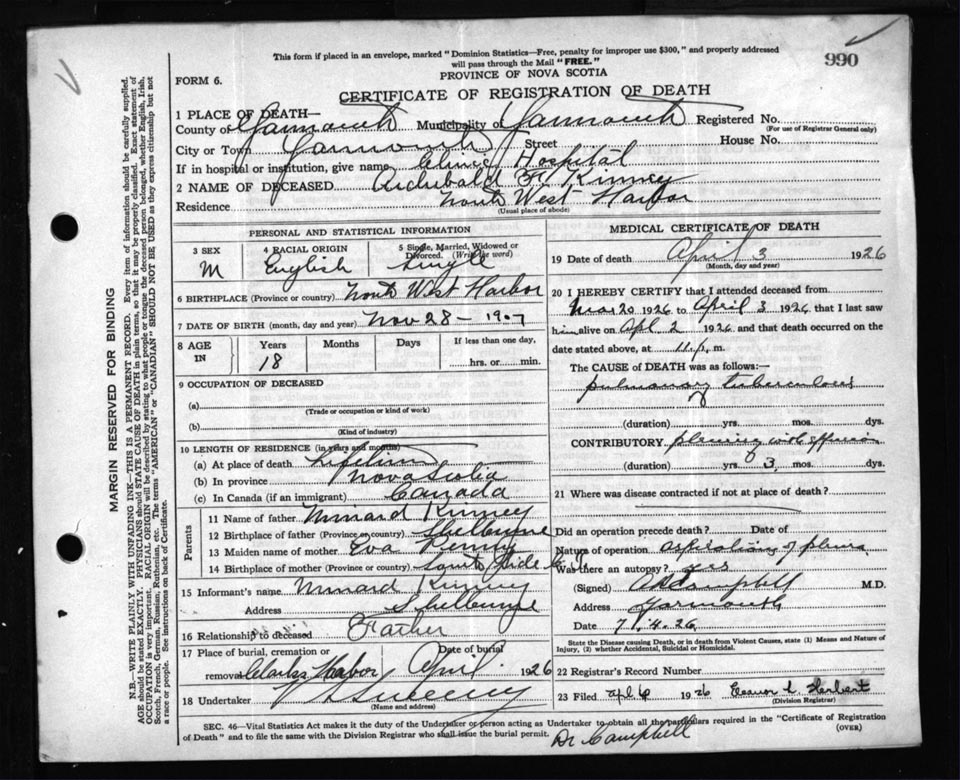 This form if placed in an envelope, marked "Dominion Statistics—Free, penalty for improper use $300," and properly addressed
will pass through the Mail "FREE."
990
FORM 6.
PROVINCE OF NOVA SCOTIA
CERTIFICATE OF REGISTRATION OF DEATH
1 PLACE OF DEATH—
County of Yarmouth Municipality of Yarmouth Registered No.
(For use of Registrar General only)
City or Town Yarmouth Street House No.
If in hospital or institution, give name Clinic Hospital
2 NAME OF DECEASED Archibald F. Kinney
Residence North West Harbor
(Usual place of abode)
PERSONAL AND STATISTICAL INFORMATION
3 SEX 4 RACIAL ORIGIN 5 Single, Married, Widowed or Divorced. (Write the word)
M English Single
6 BIRTHPLACE (Province or country) North West Harbor
7 DATE OF BIRTH (month, day and year) Nov 28 — 1907
8 AGE IN Years Months Days If less than one day,
18 hrs. or min.
9 OCCUPATION OF DECEASED
(a)
(Trade or occupation or kind of work)
(b)
(Kind of industry)
10 LENGTH OF RESIDENCE (in years and months)
(a) At place of death Lifetime
(b) In province Nova Scotia
(c) In Canada (if an immigrant) Canada
Parents
11 Name of father Minard Kinney
12 Birthplace of father (Province or country) Shelburne
13 Maiden name of mother Eva
14 Birthplace of mother (Province or country) South Side
15 Informant's name Minard Kinney
Address Shelburne
16 Relationship to deceased Father
17 Place of burial, cremation or Date of burial
removal Clarks Harbor April 1926
18 Undertaker V S Sweeny
(Name and address)
MEDICAL CERTIFICATE OF DEATH
19 Date of death April 3 1926
(Month, day and year)
20 I HEREBY CERTIFY that I attended deceased from
Mar 20 1926 to April 3 1926 that I last saw
him alive on Apl. 2 1926 and that death occurred on
date stated above, at 11 m.
The CAUSE of DEATH was as follows:—
pulmonary tuberculosis
(duration) yrs. mos. dys.
CONTRIBUTORY pleurisy with effusion
(duration) yrs. 3 mos. dys.
21 Where was disease contracted if not at place of death?
Did an operation precede death? Date of
Nature of operation aspiration of pleura
Was there an autopsy? yes
(Signed) Campbell M.D.
Address Yarmouth
Date 7.4.26
State the Disease causing Death, or in death from Violent Causes, state (1) Means and Nature of
Injury, (2) whether Accidental, Suicidal or Homicidal.
22 Registrar's Record Number
23 Filed apl 6 1926 Eleanor L. Herbert
(Division Registrar)
SEC. 46—Vital Statistics Act makes it the duty of the Undertaker or person acting as Undertaker to obtain all the particulars required in the "Certificate of Registration
of Death" and to file the same with the Division Registrar who shall issue the burial permit. (OVER)
Dr Campbell
MARGIN RESERVED FOR BINDING
N.B.—WRITE PLAINLY WITH UNFADING INK—THIS IS A PERMANENT RECORD. Every item of information should be carefully supplied.
AGE should be stated EXACTLY. PHYSICIANS should STATE CAUSE OF DEATH in plain terms, so that it may be properly classified. Exact statement of
OCCUPATION is very important. RACIAL ORIGIN will be described by stating to what people or tongue the deceased person belonged, whether English, Irish,
Scotch, French, German, Russian, Ruthenian, etc. The terms "AMERICAN" or "CANADIAN" SHOULD NOT BE USED as they express citizenship but not
a race or people. See instructions on back of Certificate.